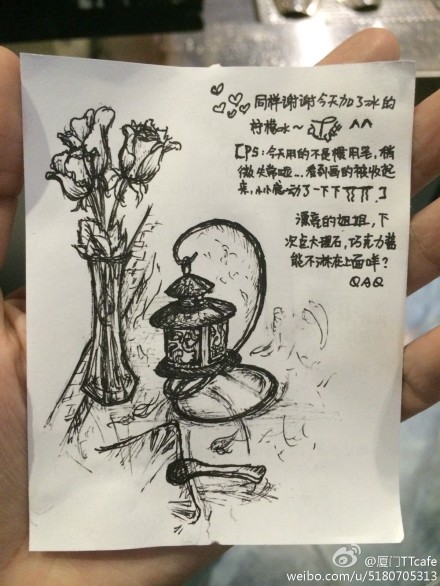 同样谢谢今天加了冰的
柠檬水~ ^^
【PS:今天用的不是惯用笔,稍
微失常啦...看到画的被收起
来,小小感动了一下下 】
漂亮的姐姐,下
次点大理石,巧克力酱
能不淋在上面咩?
QAQ
@厦门TTcafe
weibo.com/u/5180705313